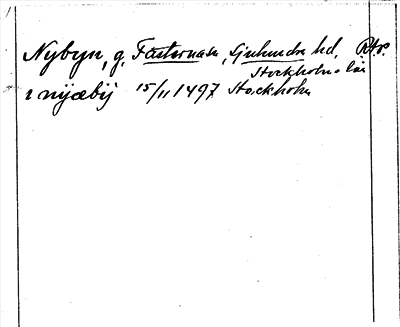 Nybyn, g. Fasterna sn, Sjuhundra hd,
Stockholms län
i nyæbij 15/11 1497 Stockholm